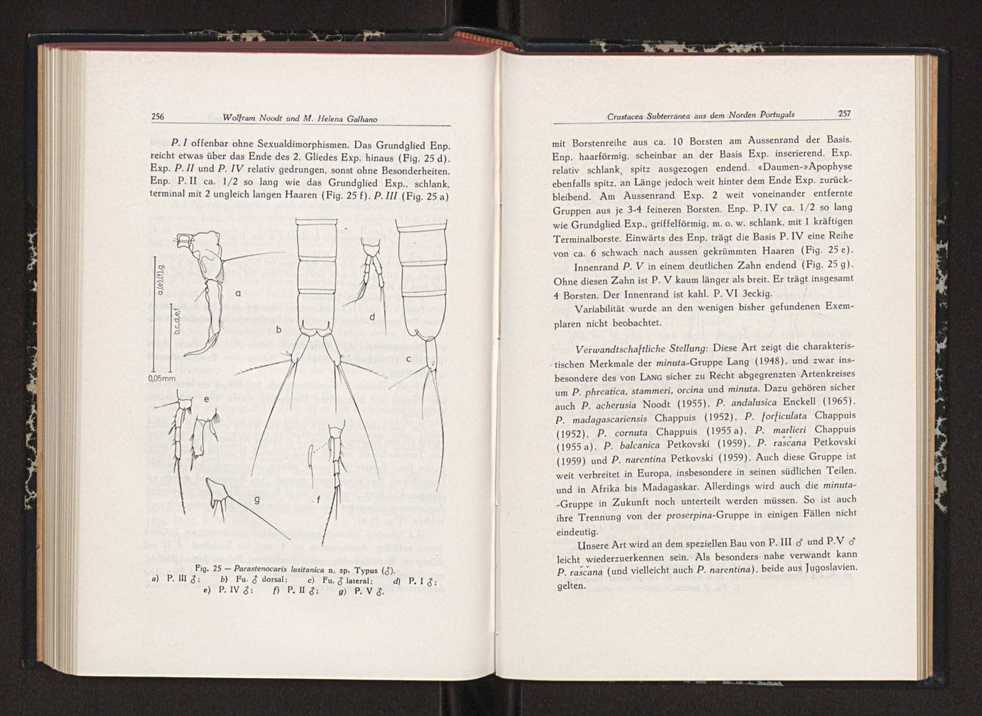 256 Wolfram Noodt und M. Helena Galhano
P. I offenbar ohne Sexualdimorphismen. Das Grundglied Enp.
reicht etwas über das Ende des 2. Gliedes Exp. hinaus (Fig. 25 d).
Exp. P. II und P. IV relativ gedrungen, sonst ohne Besonderheiten.
Enp. P. II ca. 1/2 so lang wie das Grundglied Exp., schlank,
terminal mit 2 ungleich langen Haaren (Fig. 25 f). P. III (Fig. 25 a)
a,(e),(f),g
b,c,d,e,f
0,05mm
a
b
c
d
e
f
g
Fig. 25 — Parastenocaris lusitanica n. sp. Typus (♂).
a) P. III ♂; b) Fu. ♂ dorsal; c) Fu. ♂ lateral; d) P. I ♂;
e) P. IV ♂; f) P. II ♂; g) P. V ♂.
Crustacea Subterránea aus dem Norden Portugals 257
mit Borstenreihe aus ca. 10 Borsten am Aussenrand der Basis.
Enp. haarförmig, scheinbar an der Basis Exp. inserierend. Exp.
relativ schlank, spitz ausgezogen endend. «Daumen-»Apophyse
ebenfalls spitz, an Länge jedoch weit hinter dem Ende Exp. zurück-
bleibend. Am Aussenrand Exp. 2 weit voneinander entfernte
Gruppen aus je 3-4 feineren Borsten. Enp. P. IV ca. 1/2 so lang
wie Grundglied Exp., griffelförmig, m. o. w. schlank, mit 1 kräftigen
Terminalborste. Einwärts des Enp. trägt die Basis P. IV eine Reihe
von ca. 6 schwach nach aussen gekrümmten Haaren (Fig. 25 e).
Innenrand P. V in einem deutlichen Zahn endend (Fig. 25 g).
Ohne diesen Zahn ist P. V kaum länger als breit. Er trägt insgesamt
4 Borsten. Der Innenrand ist kahl. P. VI 3eckig.
Variabilität wurde an den wenigen bisher gefundenen Exem-
plaren nicht beobachtet.
Verwandtschaftliche Stellung: Diese Art zeigt die charakteris-
tischen Merkmale der minuta-Gruppe Lang (1948), und zwar ins-
besondere des von LANG sicher zu Recht abgegrenzten Artenkreises
um P. phreatica, stammeri, orcina und minuta. Dazu gehören sicher
auch P. acherusia Noodt (1955), P. andalusica Enckell (1965),
P. madagascariensis Chappuis (1952), P. forficulata Chappuis
(1952), P. cornuta Chappuis (1955 a), P. marlieri Chappuis
(1955 a), P. balcanica Petkovski (1959), P. rascana Petkovski
(1959) und P. narentina Petkovski (1959). Auch diese Gruppe ist
weit verbreitet in Europa, insbesondere in seinen südlichen Teilen,
und in Afrika bis Madagaskar. Allerdings wird auch die minuta-
-Gruppe in Zukunft noch unterteilt werden müssen. So ist auch
ihre Trennung von der proserpina-Gruppe in einigen Fällen nicht
eindeutig.
Unsere Art wird an dem speziellen Bau von P. III ♂ und P.V ♂
leicht wiederzuerkennen sein. Als besonders nahe verwandt kann
P. rascana (und vielleicht auch P. narentina), beide aus Jugoslavien,
gelten.